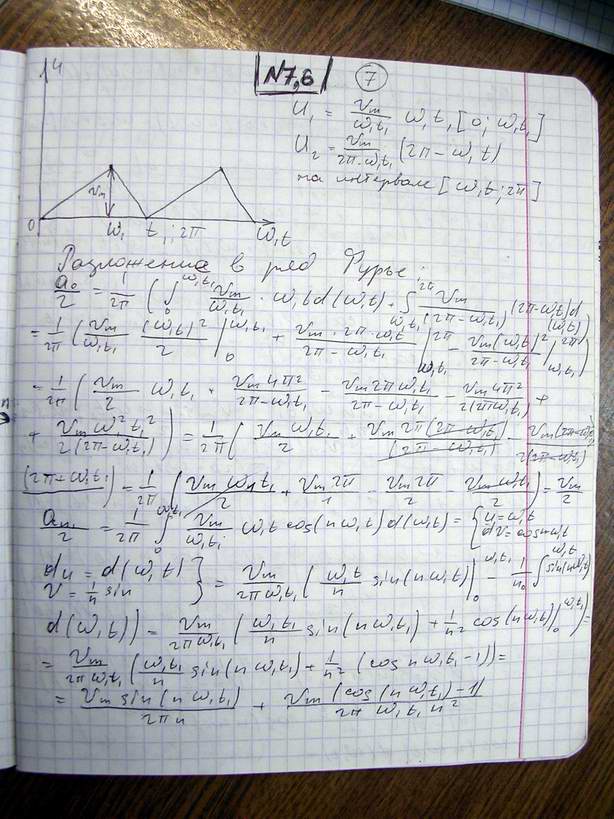 N7,6 7
U₁ = Vm/(ω₁t₁) ω₁t, [0; ω₁t₁]
U₂ = Vm/(2π-ω₁t₁) (2π - ω₁t)
на интервале [ω₁t₁; 2π]
u
Vm
0 ω₁ t₁; 2π ω₁t
Разложение в ряд Фурье:
a₀/2 = 1/2π (∫₀^ω₁t₁ Vm/(ω₁t₁) · ω₁t d(ω₁t) · ∫_ω₁t₁^2π Vm/(2π-ω₁t₁) (2π-ω₁t)d(ω₁t)
= 1/2π (Vm/(ω₁t₁) (ω₁t)²/2 |₀^ω₁t₁ + Vm·2π·ω₁t/(2π-ω₁t₁) |_ω₁t₁^2π - Vm(ω₁t)²/(2π-ω₁t₁) |_ω₁t₁^2π)
= 1/2π (Vm/2 ω₁t₁ + Vm4π²/(2π-ω₁t₁) - Vm2πω₁t₁/(2π-ω₁t₁) - Vm4π²/(2(2πω₁t₁)) +
+ Vmω²t₁²/(2(2π-ω₁t₁))) = 1/2π (Vmω₁t₁/2 + Vm2π(2π-ω₁t₁)/(2π-ω₁t₁) - Vm(2π-ω₁t₁)/2(2π-ω₁t₁)
(2π+ω₁t₁)) = 1/2π (Vmω₁t₁/2 + Vm2π/1 - Vm2π/2 - Vmω₁t₁/2) = Vm/2
aₙ₁/2 = 1/2π ∫₀^ω₁t₁ Vm/(ω₁t₁) ω₁t cos(nω₁t)d(ω₁t) = {u=ω₁t dV=cosnω₁t
du = d(ω₁t) V = 1/n sin } = Vm/(2πω₁t₁) (ω₁t/n sin(nω₁t)|₀^ω₁t₁ - 1/n ∫₀^ω₁t₁ sin(nω₁t)
d(ω₁t)) = Vm/(2πω₁t₁) (ω₁t₁/n sin(nω₁t₁) + 1/n² cos(nω₁t)|₀^ω₁t₁) =
= Vm/(2πω₁t₁) (ω₁t₁/n sin(nω₁t₁) + 1/n² (cos nω₁t₁ - 1)) =
= Vm sin(nω₁t₁)/(2πn) + Vm(cos(nω₁t₁) - 1)/(2πω₁t₁n²)